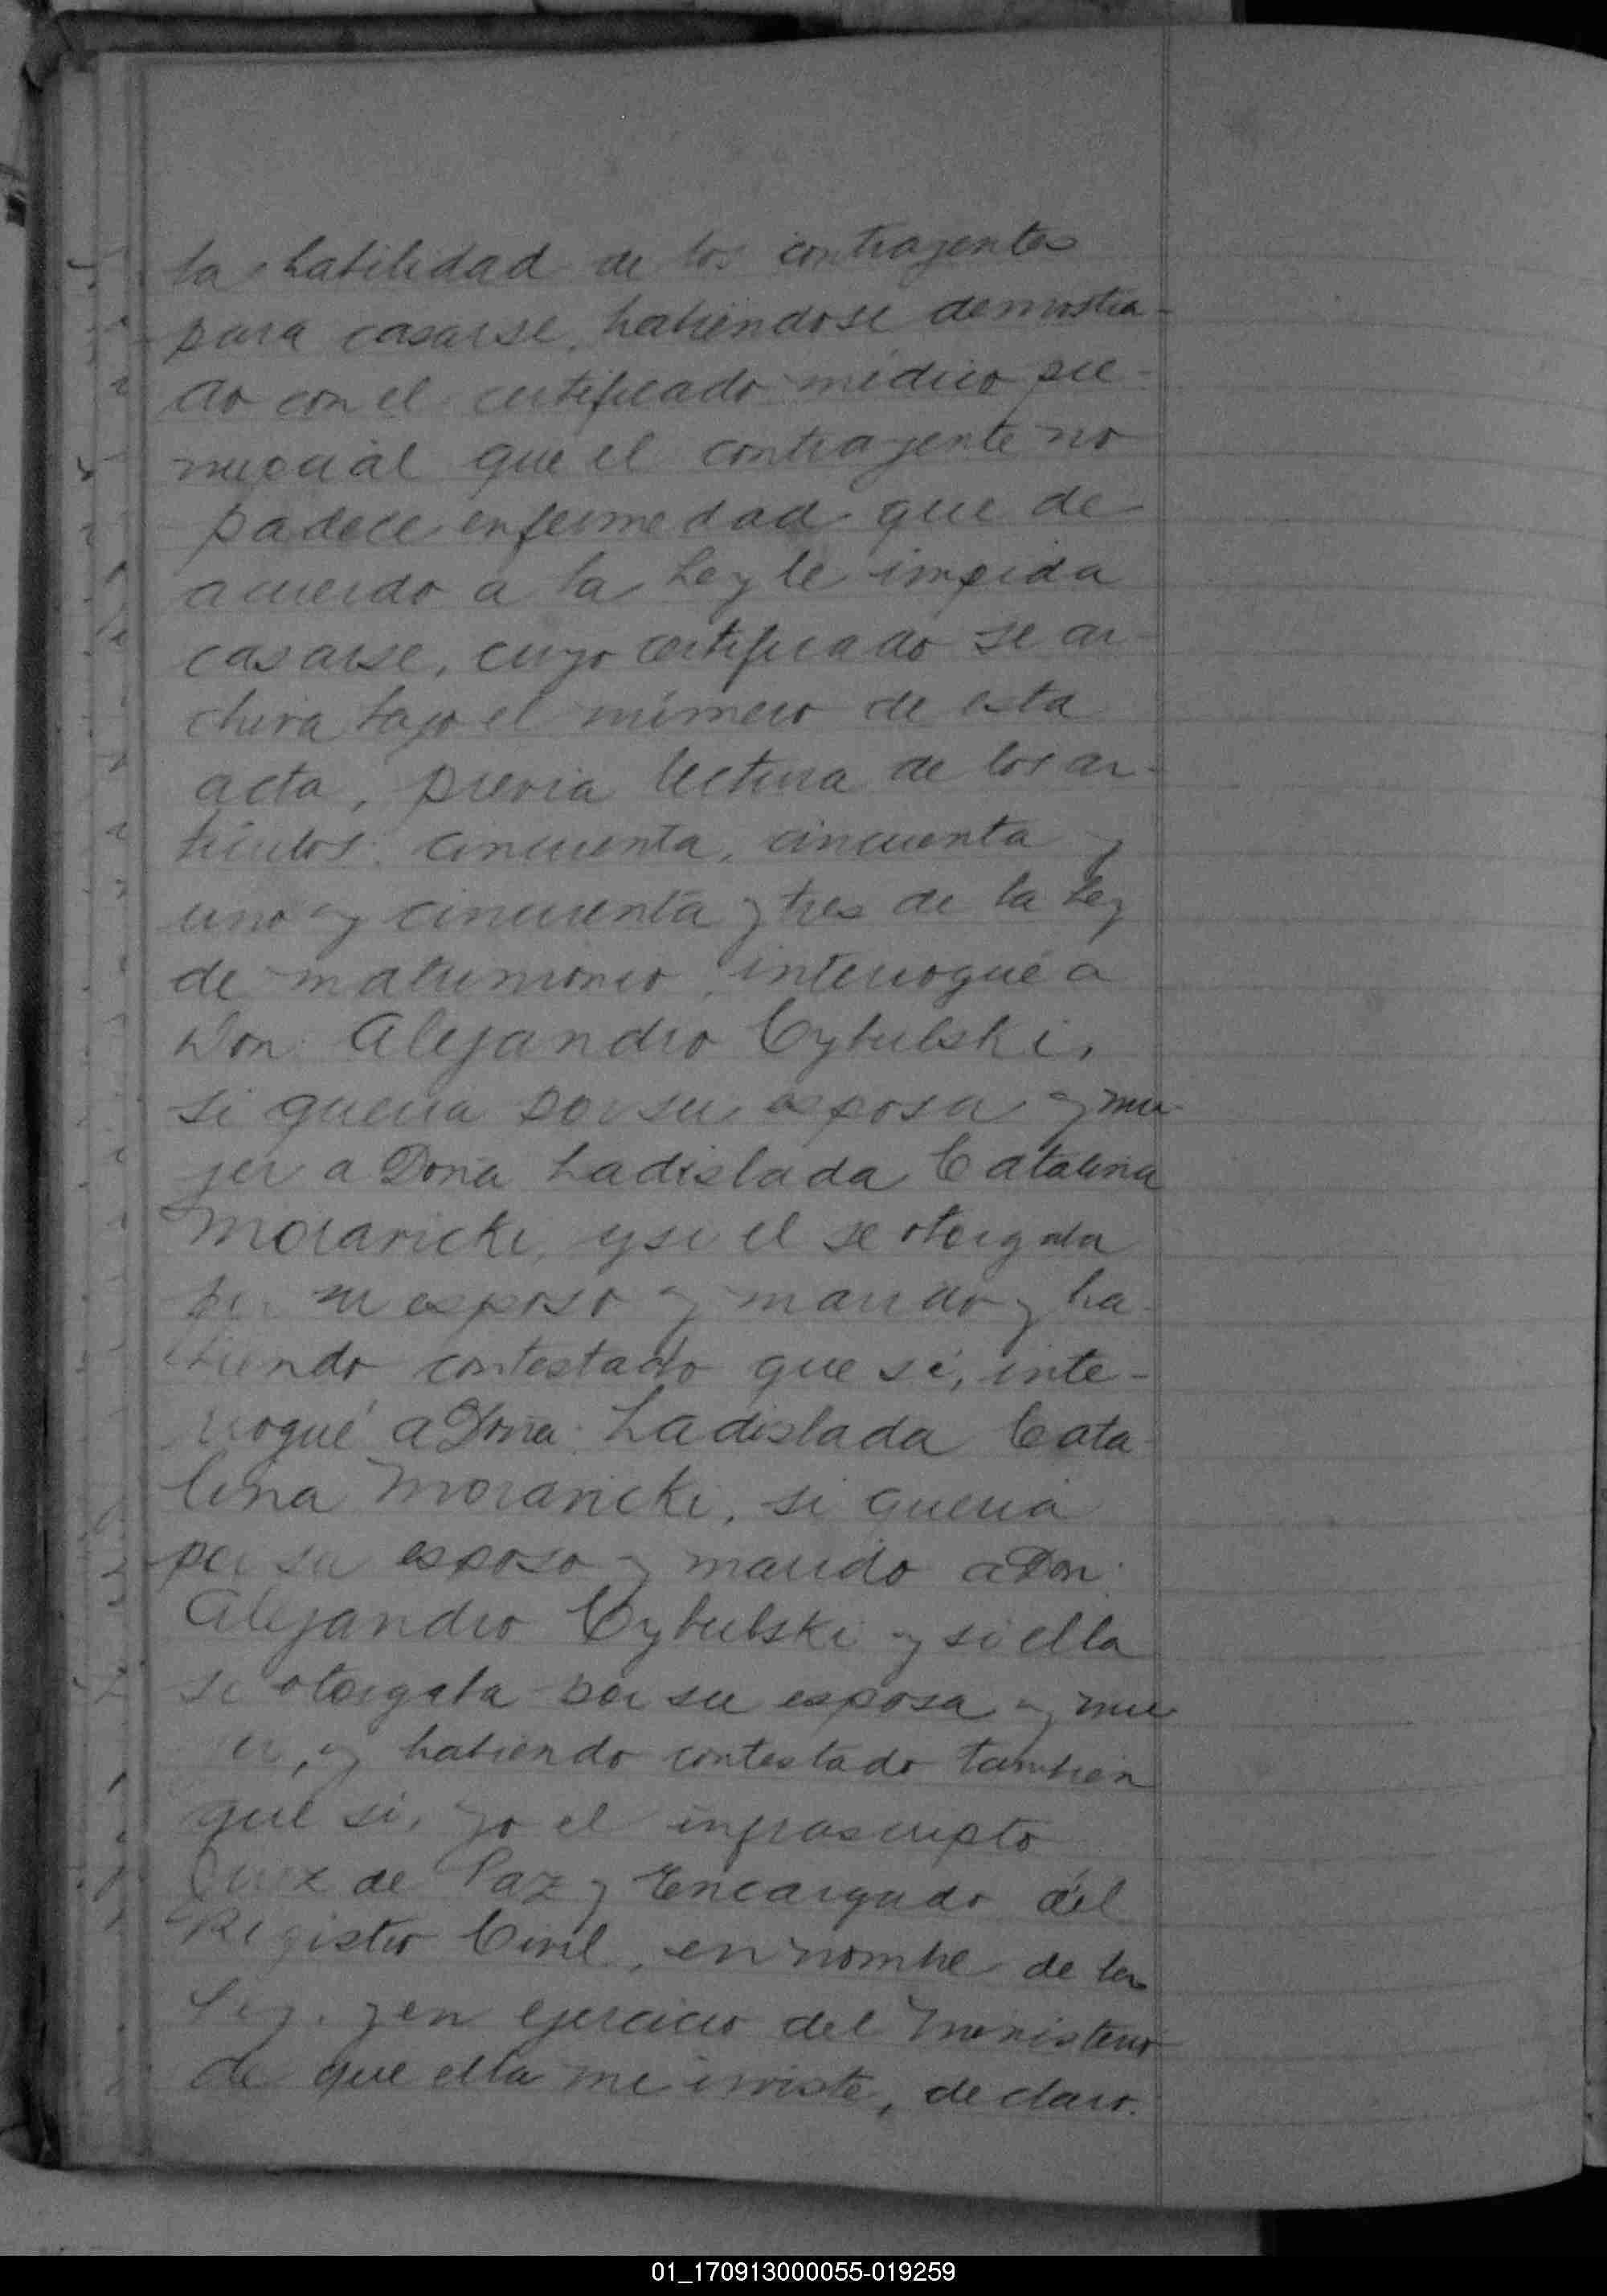 la habilidad de los contrayentes
para casarse, habiéndose demostra-
do con el certificado médico pre-
nupcial que el contrayente no
padece enfermedad que de
acuerdo a la Ley le impida
casarse, cuyo certificado se ar-
chiva bajo el número de esta
acta, previa lectura de los ar-
tículos: cincuenta, cincuenta y
uno y cincuenta y tres de la Ley
de matrimonio, interrogué a
Don: Alejandro Cybulski,
si queria por su esposa y mu-
jer a Doña Ladislada Catalina
Moravicki, y si el se otorgaba
por su esposo y marido y ha-
biendo contestado que sí, inte-
rrogué a Doña: Ladislada Cata-
lina Moravicki, si queria
por su esposo y marido a Don:
Alejandro Cybulski y si ella
se otorgaba por su esposa y mu-
er, y habiendo contestado tambien
que si, yo el infrascripto
Juez de Paz y Encargado del
Registro Civil, en nombre de la
Ley, y en ejercicio del Ministerio
de que ella me inviste, declaro.
01_170913000055-019259